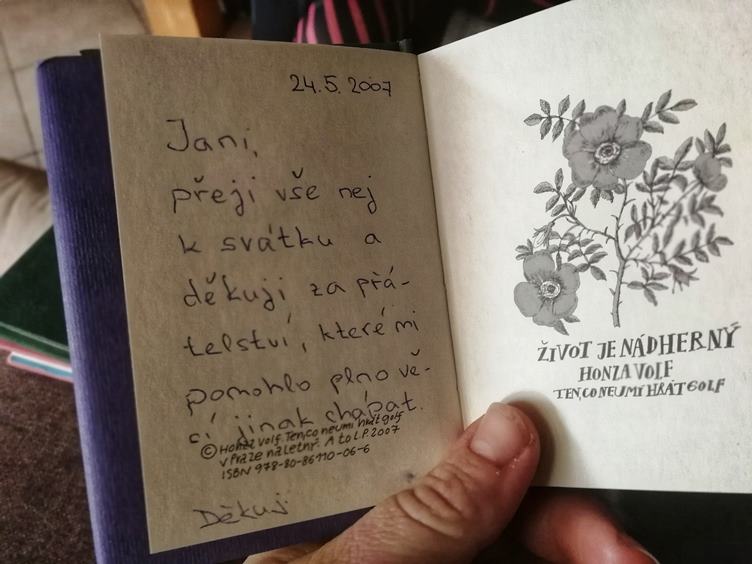 24.5. 2007
Jani,
přeji vše nej
k svátku a
děkuji za přá-
telství, které mi
pomohlo plno vě-
cí jinak chápat.
© Honza Volf. Ten, co neumí hrát golf
v Praze na Letný. A to L.P. 2007
ISBN 978-80-86110-06-6
Děkuji
ŽIVOT JE NÁDHERNÝ
HONZA VOLF
TEN, CO NEUMÍ HRÁT GOLF